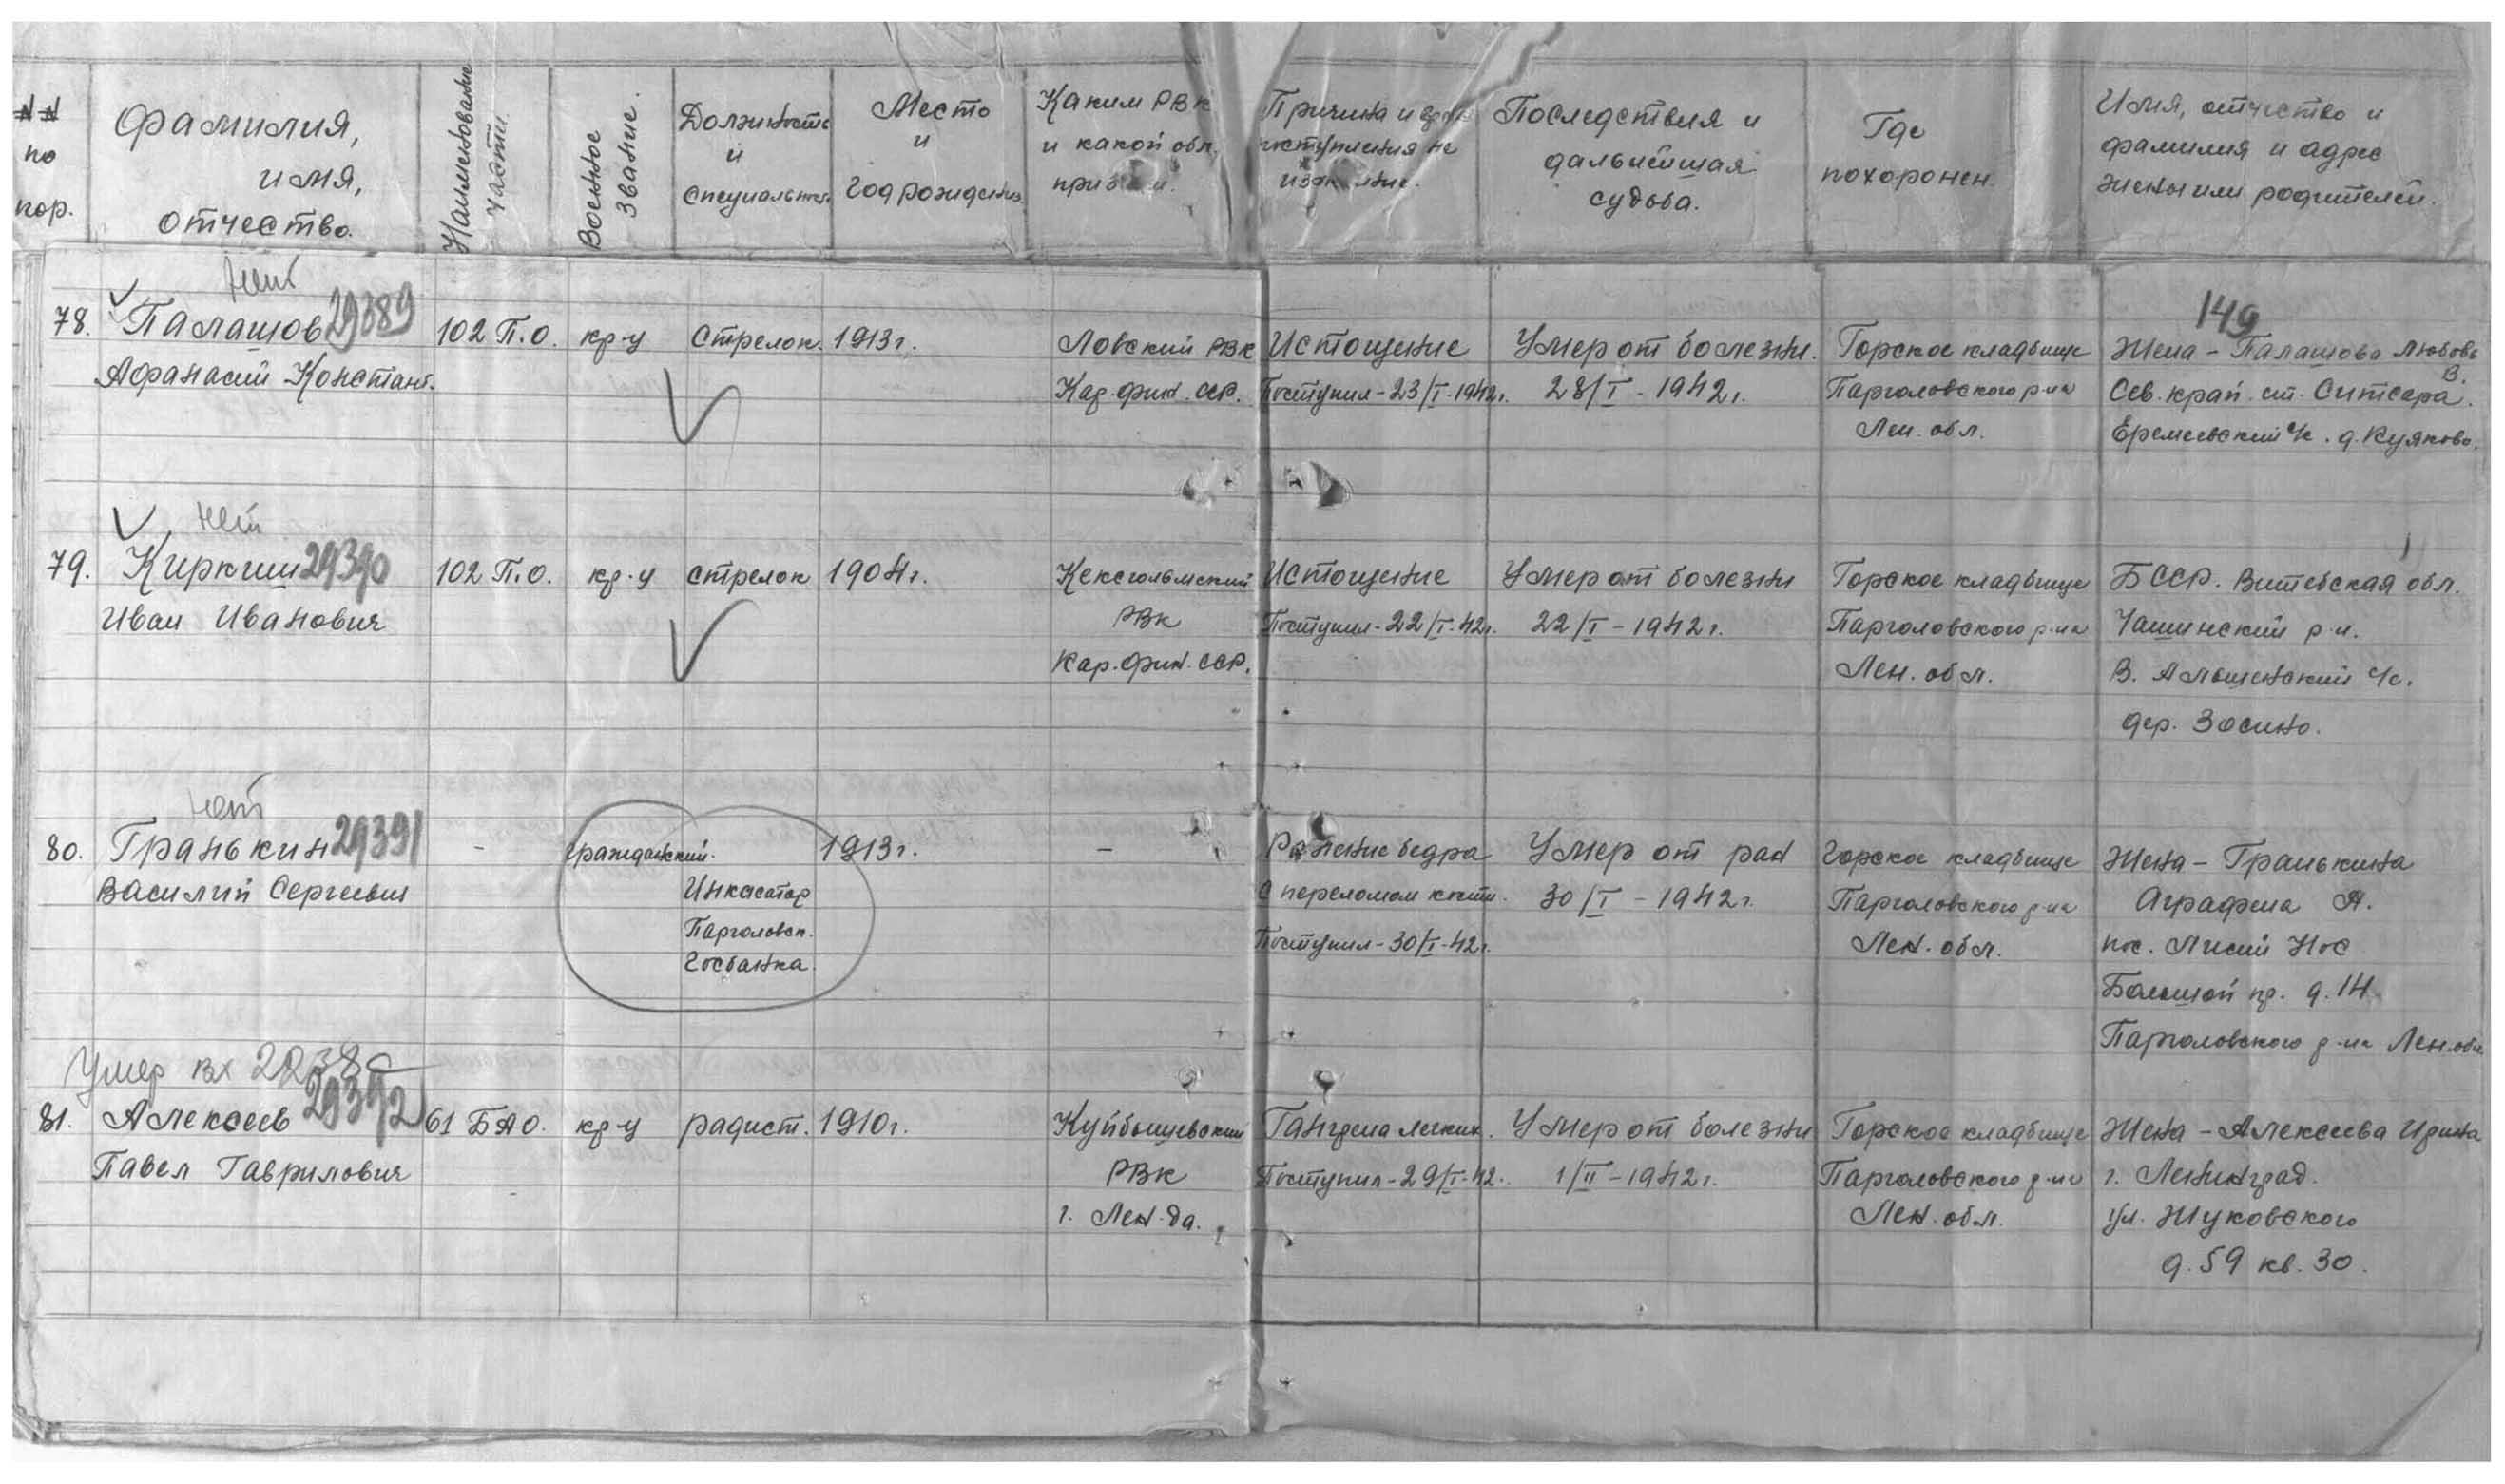 №№ по пор.
Фамилия, имя, отчество.
Наименование части.
Военное звание.
Должность и специальность
Место и год рождения
Каким РВК и какой обл.
Причина и
поступления на
Последствия и дальнейшая судьба.
Где похоронен.
Имя, отчество и фамилия и адрес жены или родителей.
149
нет
78. Палашов 29389 102 П.О. кр-ц Стрелок. 1913г. Ловский РВК Истощение Умер от болезни. Горское кладбище Жена - Палашова Любовь В.
Афанасий Констант. Кар. фин. ССР. Поступил - 23/I-1942г. 28/I - 1942г. Парголовского р-на Сев. край. ст. Ситсара.
Лен. обл. Еремеевский с/с. д. Куяково.
нет
79. Киркиш 29390 102 П.О. кр-ц стрелок 1904г. Кексгольмский Истощение Умер от болезни Горское кладбище БССР. Витебская обл.
Иван Иванович РВК Поступил - 22/I-42г. 22/I - 1942г. Парголовского р-на Чашинский р-н.
Кар. фин. ССР. Лен. обл. В. Альщевский с/с.
дер. Зосино.
нет
80. Гранькин 29391 - гражданский. 1913г. - Ранение бедра Умер от ран Горское кладбище Жена - Гранькина
Василий Сергеевич Инкасатор с переломом кости. 30/I - 1942г. Парголовского р-на Аграфена А.
Парголовск. Поступил - 30/I-42г. Лен. обл. пос. Лисий Нос
Госбанка. Большой пр. д. 14
Парголовского р-на Лен. обл.
Умер вх
81. Алексеев 29392 61 БАО. кр-ц радист. 1910г. Куйбышевский Гангрена легких. Умер от болезни Горское кладбище Жена - Алексеева Ирина
Павел Гаврилович РВК Поступил - 29/I-42. 1/II - 1942г. Парголовского р-на г. Ленинград.
г. Лен-да. Лен. обл. ул. Жуковского
д. 59 кв. 30.